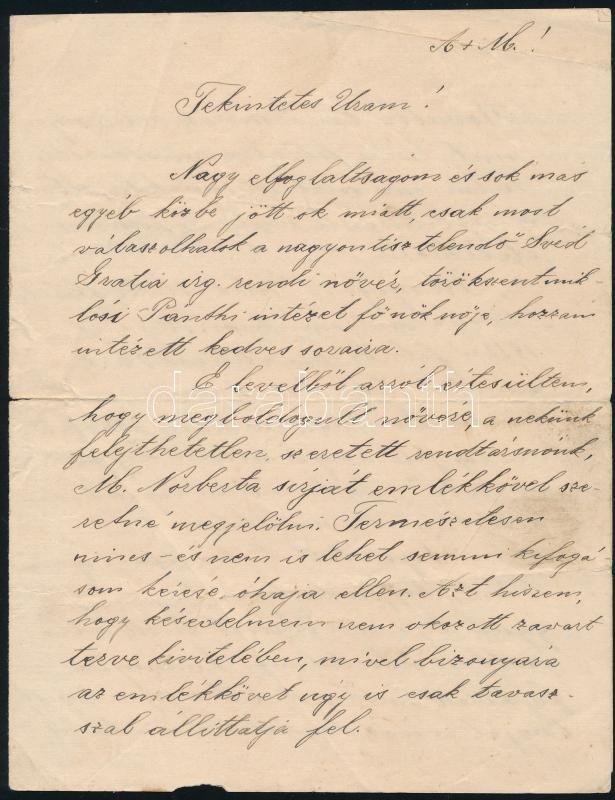 A + M.!
Tekintetes Uram!
Nagy elfoglaltságom és sok más
egyéb közbe jött ok miatt, csak most
válaszolhatok a nagyontisztelendő Svéd
Gratia irg. rendi nővér, törökszentmik-
lósi Pánthi intézet főnöknője, hozzám
intézett kedves soraira.
E levélből arról értesültem,
hogy megboldogult nővére, a nekünk
felejthetetlen, szeretett rendtársnőnk,
M. Norberta sirját emlékkővel sze-
retné megjelölni. Természetesen
nincs - és nem is lehet semmi kifogá
som kérése, óhaja ellen. Azt hiszem,
hogy késedelmem nem okozott zavart
terve kivitelében, mivel bizonyára
az emlékkövet úgy is csak tavasz-
szal állíttatja fel.
darabanth